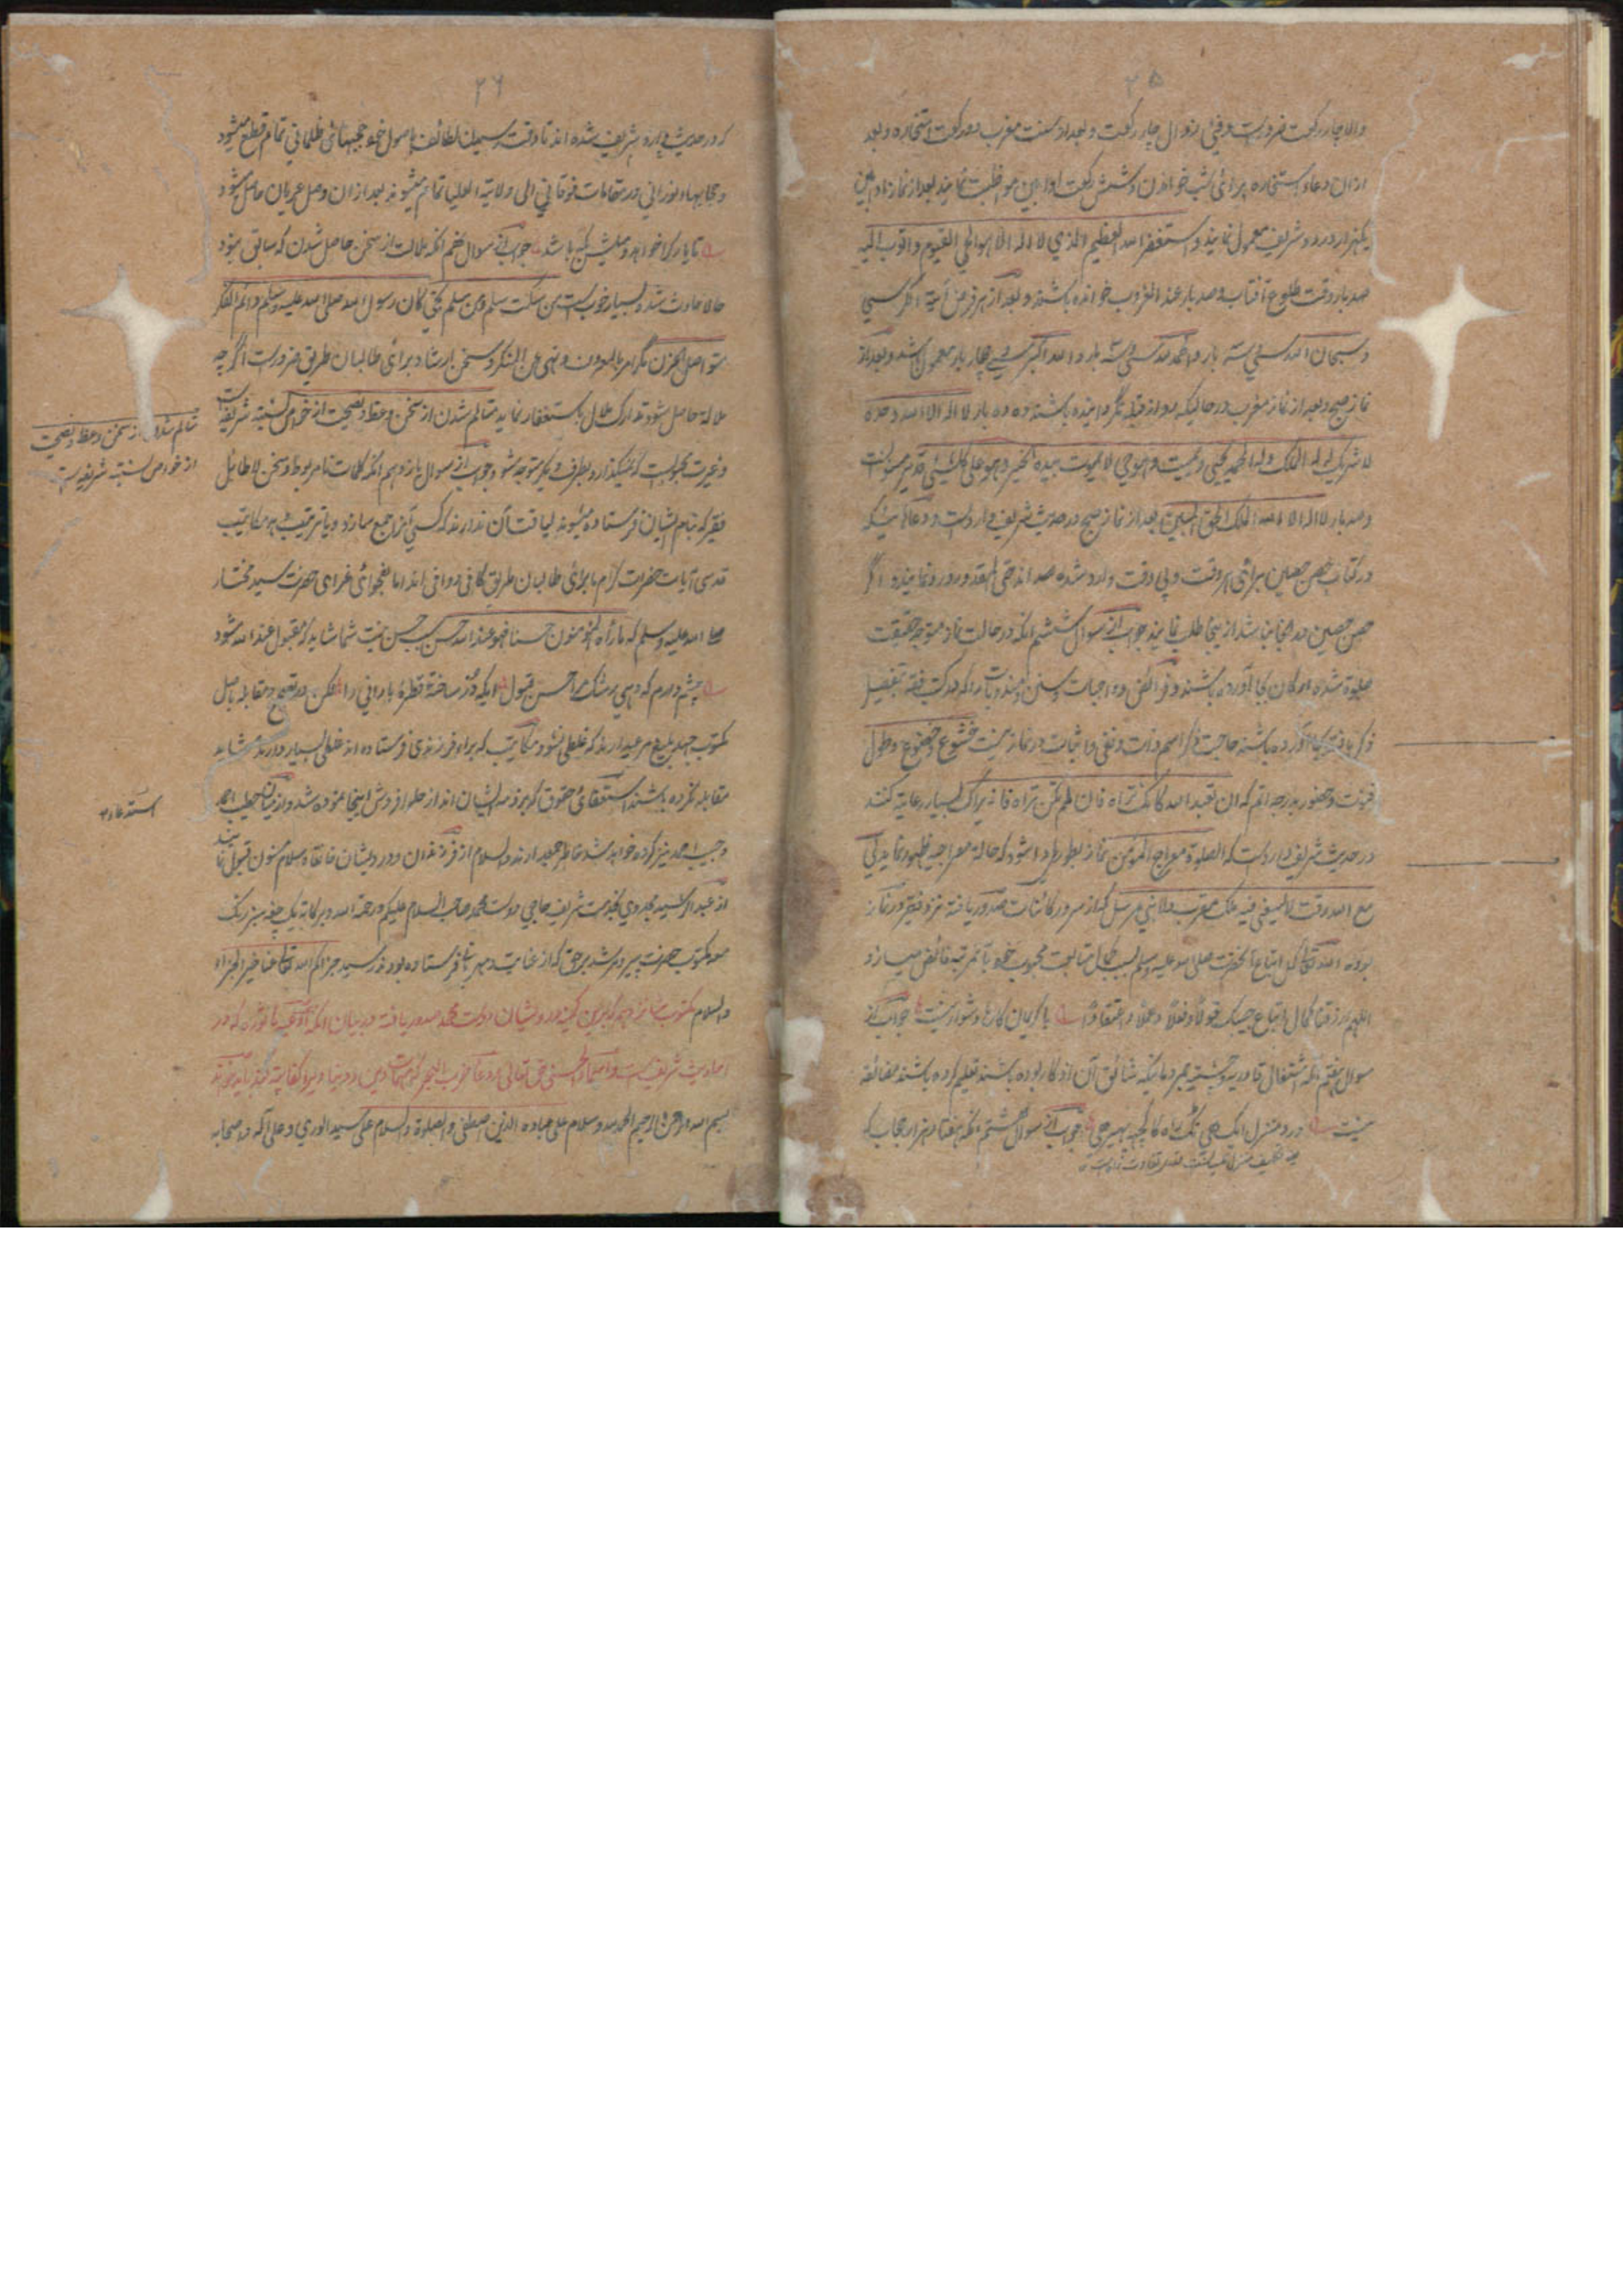 ۲۵
والا چار رکعت ضرورست و فیٔ زوال چار رکعت و بعد از سنت مغرب دو رکعت استخاره و بعد
ازان دعاء استخاره برائی شب خواندن و شش رکعت اوابین مواظبت نمایند بعد از نماز
یکهزار درود شریف معمول نمایند و استغفر الله العظیم الذی لا اله الا هو الحی القیوم و اتوب الیه
صد بار وقت طلوع آفتاب و صد بار عند الغروب خوانده باشند و بعد از هر فرض آیة الکرسی
و سبحان الله سی سه بار و الحمد لله سی سه بار و الله اکبر سی چهار بار معمول باشد و بعد از
نماز صبح و بعد از نماز مغرب در حالیکه رو از قبله نگردانیده باشند ده ده بار لا اله الا الله وحده
لا شریک له له الملک و له الحمد یحیی و یمیت و هو حی لا یموت بیده الخیر و هو علی کل شیئ قدیر مسنونست
و صد بار لا اله الا الله الملک الحق المبین بعد از نماز صبح در حدیث شریف وارد است و دعاها ئیکه
در کتاب حصن حصین برائی هر وقت و بی وقت وارد شده اند حتی المقدور ورد نمایند و اگر
حصن حصین در آنجا نباشد از ینجا طلب نمایند جواب از سوال ششم آنکه در حالت نماز متوجه حقیقت
صلوة شده ارکان بجا آورده باشند و فرائض و واجبات و سنن و مندوبات را که در کتب فقه بتفصیل
ذکر یافته بجا آورده باشند حاجت ذکر اسم ذات و نفی و اثبات در نماز نیست خشوع و خضوع و طول
قنوت و حضور بدرجه اتم که ان تعبد الله کانک تراه فان لم تکن تراه فانه یراک بسیار رعایة کنند
در حدیث شریف وارد است که الصلوة معراج المؤمن نماز بطوری ادا شود که حالة معراجیه ظهور نماید لی
مع الله وقت لا یسعنی فیه ملک مقرب ولا نبی مرسل که از سرور کائنات صدور یافته نزد فقیر در نماز
بوده الله تعالی کمل اتباع آنحضرت صلی الله علیه وسلم بسبب کمال متابعت محبوب خود بآنمرتبه فائض میسازد
اللهم ارزقنا کمال اتباع حبیبک قولا و فعلا و عملا و اعتقادا با کریمان کارها دشوار نیست جواب از
سوال هفتم آنکه اشتغال قادریه و چشتیه بمردمانیکه شائق آن اذکار بوده باشند تعلیم کرده باشند مضائقه
نیست در و منزل ایک هی جواب از سوال هشتم آنکه هفتاد هزار حجاب که
۲۶
که در حدیث وارد شریف شده اند تا وقت رسیدن لطائف باصول خود حجبهائی ظلمانی تمام قطع میشود
و حجابهاء نورانی در مقامات فوقانی الی ولایة العلیا تمام میشوند بعد ازان وصل عریان حاصل میشود
تا یار کرا خواهد و میلش بکه باشد جواب از سوال نهم آنکه ملالت از سخن حاصل شدن که سابق نبود
حالا حادث شد و بسیار خوب است من سکت سلم و من سلم نجی کان رسول الله صلی الله علیه وسلم دائم الفکر
متواصل الحزن مگر امر بالمعروف و نهی عن المنکر و سخن ارشاد برائی طالبان طریق ضرورست اگر چه
ملالة حاصل شود تدارک ملال باستغفار نماید متالم شدن از سخن وعظ و نصیحت از خواص نسبته شریفه است
و غیرت محبوب است که نمیگذارد بطرف دیگر متوجه شود جواب از سوال یازدهم آنکه کلمات نامربوط و سخن لاطایل
فقیر که بنام ایشان فرستاده میشوند لیاقت آن ندارند که کسی آنرا جمع سازد و یا ترتیب دهد مکاتیب
قدسی آیات حضرات کرام ما برائی طالبان طریق کافی و وافی اند اما بفحوائی غرای حضرت سید مختار
صلی الله علیه وسلم که ما رآه المؤمنون حسنا فهو عند الله حسن بسبب حسن نیت شما شاید که مقبول عند الله شود
چشم دارم که دهی اشک مرا حسن قبول ایکه در ساخته قطرهٔ بارانی را لکن در تصحیح و مقابله باصل
مکتوب جهد بلیغ مرعی دارند که غلطی نشود مکاتیب که برادر فرزندی فرستاده اند غلطی بسیار دارند شاید
مقابله نکرده باشند استقفائ حقوق که بر ذمه ایشان اند از حلوا فروش اینجا نموده شد و از
و حبیب احمد نیز کرده خواهد شد خاطر جمع دارند والسلام از فرزندان و درویشان خانقاه سلام مسنون قبول نمایند
از عبد الرسید مجددی بخدمت شریف حاجی دوست محمد صاحب السلام علیکم ورحمة الله وبرکاته یک جبه سبز رنگ
معه مکتوب حضرت پیر و مرشد برحق که از عنایت و مهربانی فرستاده بودند رسید جزاکم الله تعالی عنا خیر الجزاء
والسلام مکتوب شانزدهم که باین کمینه درویشان دوست محمد صدور یافته در بیان آنکه ادعیه ماثوره که در
احادیث شریف است و اسماء الحسنی حق تعالی و دعاء حزب البحر
بسم الله الرحمن الرحیم الحمد لله و سلام علی عباده الذین اصطفی والصلوة والسلام علی سید الوری وعلی آله واصحابه
متالم شدن از سخن وعظ و نصیحت
از خواص نسبته شریفه است
استدعاء